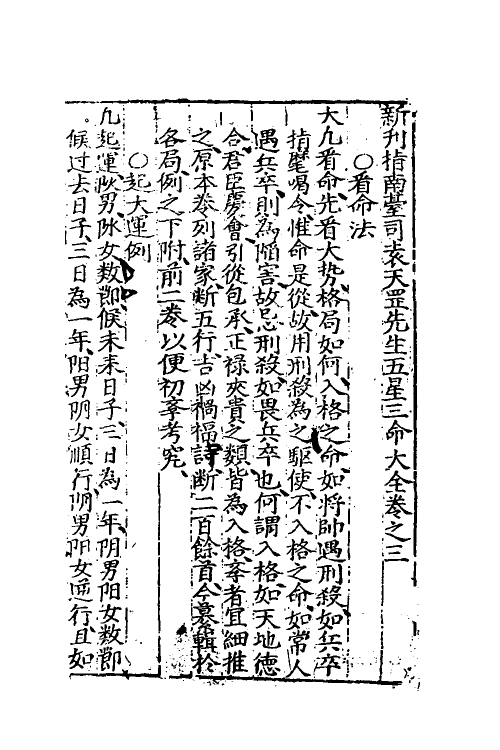 新刋指南䑓司袁天罡先生五星三命大全卷之三
○看命法
大凢看命先看大势格局如何入格之命如将帥遇刑殺如兵卒
指麾喝令惟命是從故用刑殺為之駆使不入格之命如常人
遇兵卒則為䧟害故忌刑殺如畏兵卒也何謂入格如天地德
合君臣慶會引從包承正禄夾貴之類皆為入格李者宜細推
之原本卷刻諸家断五行吉凶禍福詩断二百餘首今纂輯於
各局例之下附前二卷以便初孝考究
○起大運例
凢起運陽男阴女数節候未来日子三日為一年阴男阳女数節
候过去日子三日為一年阳男阴女順行阴男阳女逆行且如